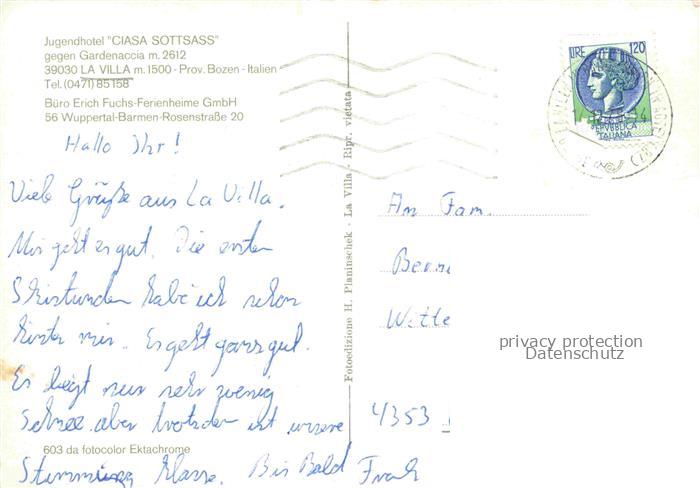 Jugendhotel "CIASA SOTTSASS"
gegen Gardenaccia m. 2612
39030 LA VILLA m. 1500 - Prov. Bozen - Italien
Tel. (0471) 85158
Büro Erich Fuchs-Ferienheime GmbH
56 Wuppertal-Barmen-Rosenstraße 20
Hallo Ihr!
Viele Grüße aus La Villa.
Mir geht es gut. Die ersten
Skistunden habe ich schon
hinter mir. Es geht ganz gut.
Es liegt nur sehr wenig
Schnee aber trotzdem ist unsere
Stimmung Klasse. Bis Bald Frank
603 da fotocolor Ektachrome
Fotoedizione H. Planinschek - La Villa - Ripr. vietata
LIRE 120
REPVBBLICA
ITALIANA
An Fam.
Bern
Witte
4353
privacy protection
Datenschutz